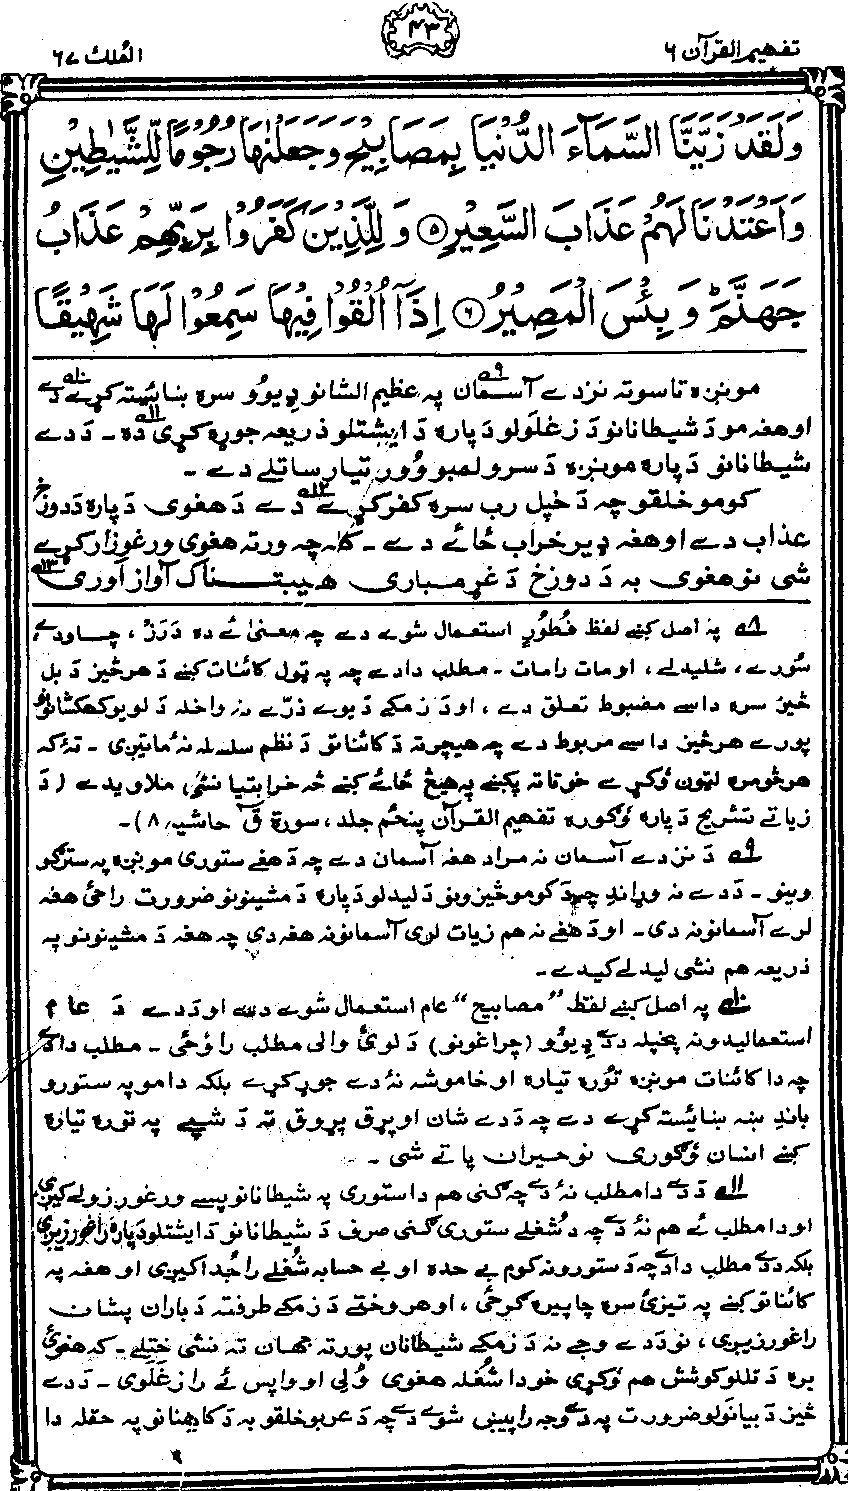 تفهيم القرآن ۶
۴۳
الملك ۶۷
وَلَقَدْ زَيَّنَّا السَّمَآءَ الدُّنْيَا بِمَصَابِيْحَ وَجَعَلْنٰهَا رُجُوْمًا لِّلشَّيٰطِيْنِ
وَاَعْتَدْنَا لَهُمْ عَذَابَ السَّعِيْرِ ۵ وَ لِلَّذِيْنَ كَفَرُوْا بِرَبِّهِمْ عَذَابُ
جَهَنَّمَ ؕ وَ بِئْسَ الْمَصِيْرُ ۶ اِذَآ اُلْقُوْا فِيْهَا سَمِعُوْا لَهَا شَهِيْقًا
مونږه تاسوته نزدے آسمان ۹ په عظیم الشانو ډیوو سره ښائسته کړے دے ۱۰
اوهغه مو د شیطانانو د زغلولو د پاره د ایشتلو ذریعه جوړه کړی ده ۱۱ ـ د دے
شیطانانو د پاره مونږه د سرو لمبو وور تیار ساتلے دے ـ
کومو خلقو چه د خپل رب سره کفر کړے ۱۲ دے د هغوی د پاره د دوزخ
عذاب دے او هغه ډیر خراب ځائے دے ـ کله چه ورته هغوی ورغوزار کړے
شی نو هغوی به د دوزخ د غړمباری هیبتناک آواز آوری ۱۳
۸ په اصل کښے لفظ فُطُوْرٍ استعمال شوے دے چه معنیٰ ئے ده دَرَز ، چاودے،
سُورے، شلیدلے، اومات رامات ـ مطلب دادے چه په ټول کائنات کښے د هر څیز د بل
څیز سره داسے مضبوط تعلق دے ، اود زمکے د یوے ذرّے نه واخله د لویو کهکشانو
پورے هر څیز داسے مربوط دے چه هیچرته د کائناتو د نظم سلسله نهٔ ماتیږی ـ تهٔ که
هر څومره لټون وکړے خو تا ته پکښے په هیڅ ځائے کښے څه خرابتیا نشی ملاویدے (د
زیاتے تشریح د پاره وګوره تفهیم القرآن پنځم جلد ، سورة قٓ حاشیه ۸) ـ
۹ د نزدے آسمان نه مراد هغه آسمان دے چه د هغے ستوری مونږه په سترګو
وینو ـ د دے نه وړاندے چه د کومو څیزونو د لیدلو د پاره د مشینونو ضرورت راځی هغه
لرے آسمانونه دی ـ اود هغے نه هم زیات لری آسمانونه هغه دی چه هغه د مشینونو په
ذریعه هم نشی لیدلے کیدے ـ
۱۰ په اصل کښے لفظ "مصابیح" عام استعمال شوے دے اود دے د عام
استعمالیدونه پخپله د دے ډیوو (چراغونو) د لوئ والی مطلب راوځی ـ مطلب دادے
چه دا کائنات مونږه توره تیاره او خاموشه نهٔ دے جوړ کړے بلکه دا مو په ستورو
باندے ښه ښائسته کړے دے چه د دے شان او پړق پړوق ته د شپے په توره تیاره
کښے انسان وګوری نو حیران پاتے شی ـ
۱۱ د دے دا مطلب نهٔ دے چه ګنی هم دا ستوری په شیطانانو پسے ورغورزولے کیږی
اودا مطلب ئے هم نهٔ دے چه د شغلے ستوری ګنی صرف د شیطانانو د ایشتلو د پاره راغورزیږی
بلکه د دے مطلب دادے چه د ستورونه کوم بے حده او بے حسابه شغلے راجدا کیږی او هغه په
کائناتو کښے په تیزئ سره چاپیره ګرځی ، او هر وختے د زمکے طرفته د باران پشان
راغورزیږی ، نو د دے وجے نه د زمکے شیطانان پورته جهان ته نشی ختلے ـ که هغوئ
بره د تللو کوشش هم وکړی خو دا شغله هغوی ولی او واپس ئے راز غلوی ـ د دے
څیز د بیانولو ضرورت په دے وجه راپیښ شوے دے چه د عربو خلقو به د کاهنانو په حقله دا